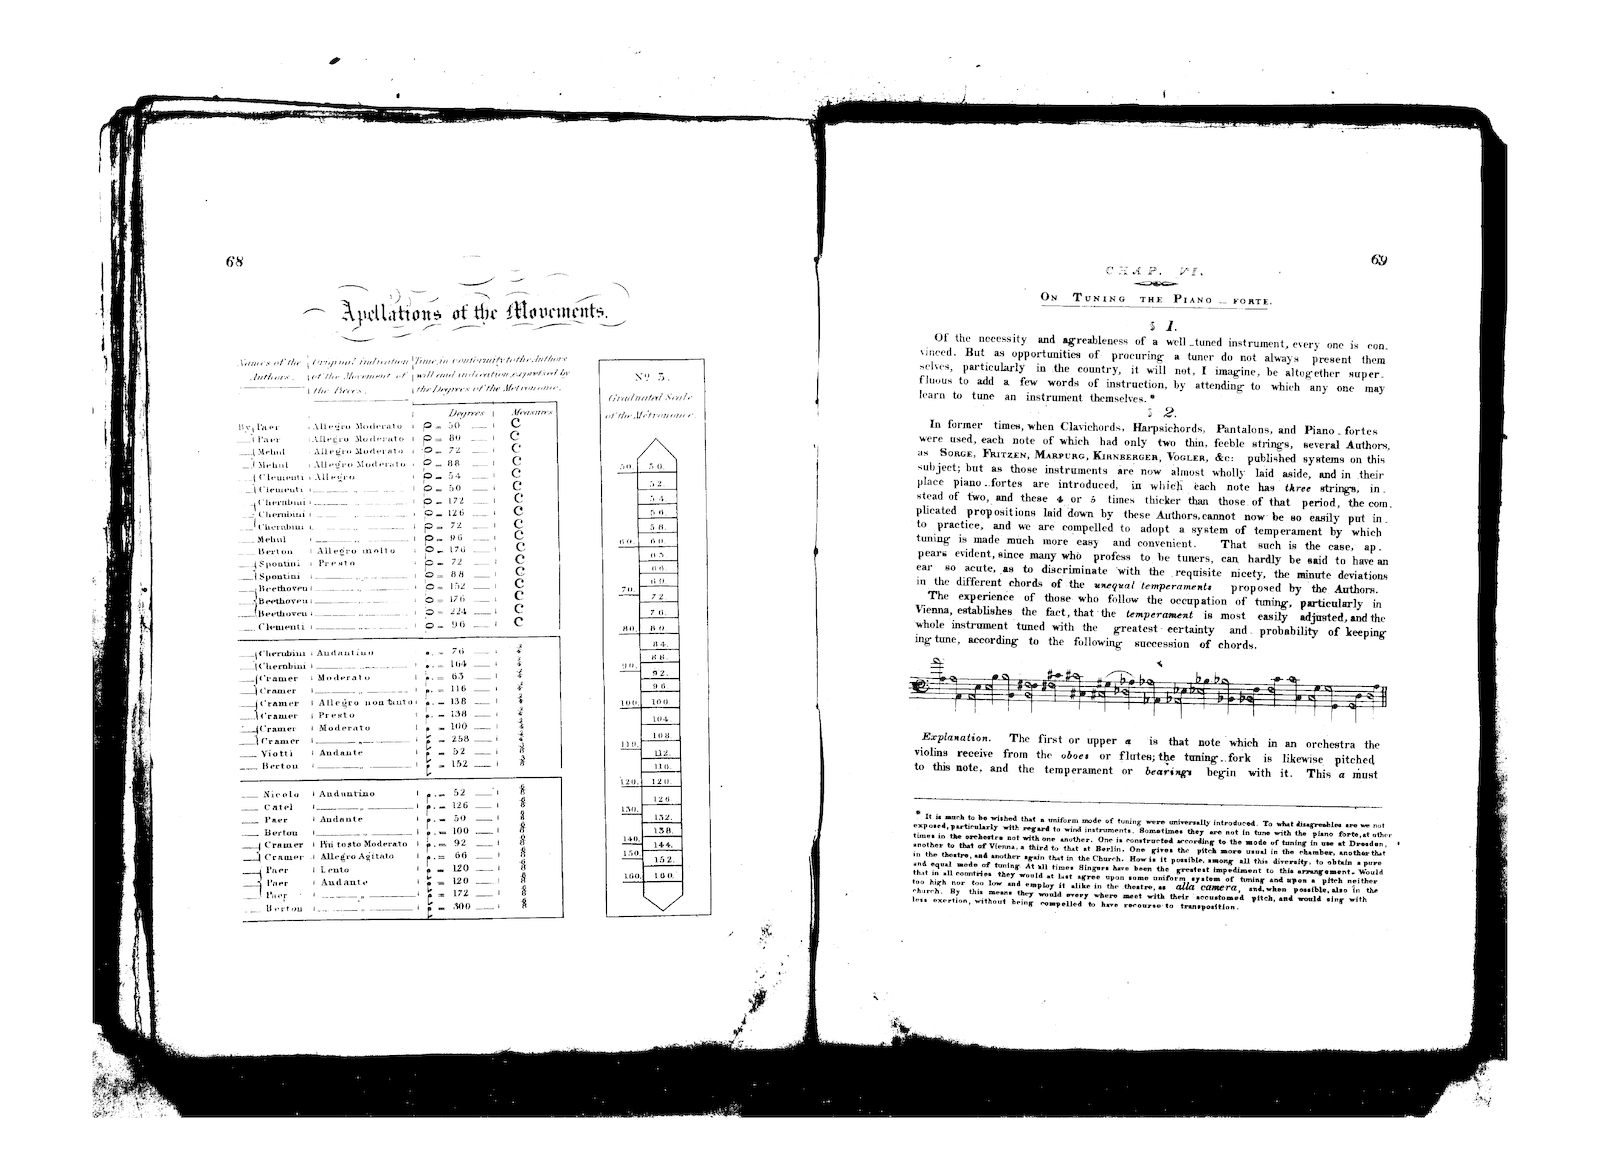 68
Apellations of the Movements.
Names of the Authors. | Original indication of the Movement of the Pieces. | Time, in conformity to the Authors will and indication, expressed by the Degrees of the Metronome.
Degrees Measures
By Paer Allegro Moderato = 50 C
Paer Allegro Moderato = 80 C
Mehul Allegro Moderato = 72 C
Mehul Allegro Moderato = 88 C
Clementi Allegro = 54 C
Clementi „ = 50 C
Cherubini „ = 172 C
Cherubini „ = 126 C
Cherubini „ = 72 C
Mehul „ = 96 C
Berton Allegro molto = 176 C
Spontini Presto = 72 C
Spontini „ = 88 C
Beethoven „ = 152 C
Beethoven „ = 176 C
Beethoven „ = 224 C
Clementi „ = 96 C
Cherubini Andantino = 76
Cherubini „ = 104
Cramer Moderato = 63
Cramer „ = 116
Cramer Allegro non tanto = 138
Cramer Presto = 138
Cramer Moderato = 100
Cramer „ = 258
Viotti Andante = 52
Berton „ = 152
Nicolo Andantino = 52
Catel „ = 126
Paer Andante = 50
Berton „ = 100
Cramer Più tosto Moderato = 92
Cramer Allegro Agitato = 66
Paer Lento = 120
Paer Andante = 120
Paer „ = 172
Berton „ = 300
No 3.
Graduated Scale
of the Metronome.
50. 50.
52.
54.
56.
58.
60. 60.
63.
66.
69.
70.
72.
76.
80. 80.
84.
88.
90.
92.
96.
100. 100.
104.
108.
110.
112.
116.
120. 120.
126
130.
132.
138.
140.
144.
150.
152.
160. 160.
69
CHAP. VI.
On Tuning the Piano_forte.
§ 1.
Of the necessity and agreableness of a well_tuned instrument, every one is con_
vinced. But as opportunities of procuring a tuner do not always present them
selves, particularly in the country, it will not, I imagine, be altogether super_
fluous to add a few words of instruction, by attending to which any one may
learn to tune an instrument themselves.*
§ 2.
In former times, when Clavichords, Harpsichords, Pantalons, and Piano_fortes
were used, each note of which had only two thin, feeble strings, several Authors,
as Sorge, Fritzen, Marpurg, Kirnberger, Vogler, &c: published systems on this
subject; but as those instruments are now almost wholly laid aside, and in their
place piano_fortes are introduced, in which each note has three strings, in_
stead of two, and these 4 or 5 times thicker than those of that period, the com_
plicated propositions laid down by these Authors, cannot now be so easily put in_
to practice, and we are compelled to adopt a system of temperament by which
tuning is made much more easy and convenient. That such is the case, ap_
pears evident, since many who profess to be tuners, can hardly be said to have an
ear so acute, as to discriminate with the requisite nicety, the minute deviations
in the different chords of the unequal temperaments proposed by the Authors.
The experience of those who follow the occupation of tuning, particularly in
Vienna, establishes the fact, that the temperament is most easily adjusted, and the
whole instrument tuned with the greatest certainty and probability of keeping
ing tune, according to the following succession of chords.
Explanation. The first or upper a is that note which in an orchestra the
violins receive from the oboes or flutes; the tuning_fork is likewise pitched
to this note, and the temperament or bearings begin with it. This a must
* It is much to be wished that a uniform mode of tuning were universally introduced. To what disagreables are we not
exposed, particularly with regard to wind instruments. Sometimes they are not in tune with the piano forte, at other
times in the orchestra not with one another. One is constructed according to the mode of tuning in use at Dresden,
another to that of Vienna, a third to that at Berlin. One gives the pitch more usual in the chamber, another that
in the theatre, and another again that in the Church. How is it possible, among all this diversity, to obtain a pure
and equal mode of tuning At all times Singers have been the greatest impediment to this arrangement. Would
that in all countries they would at last agree upon some uniform system of tuning and upon a pitch neither
too high nor too low and employ it alike in the theatre, as alla camera, and, when possible, also in the
church. By this means they would every where meet with their accustomed pitch, and would sing with
less exertion, without being compelled to have recourse to transposition.